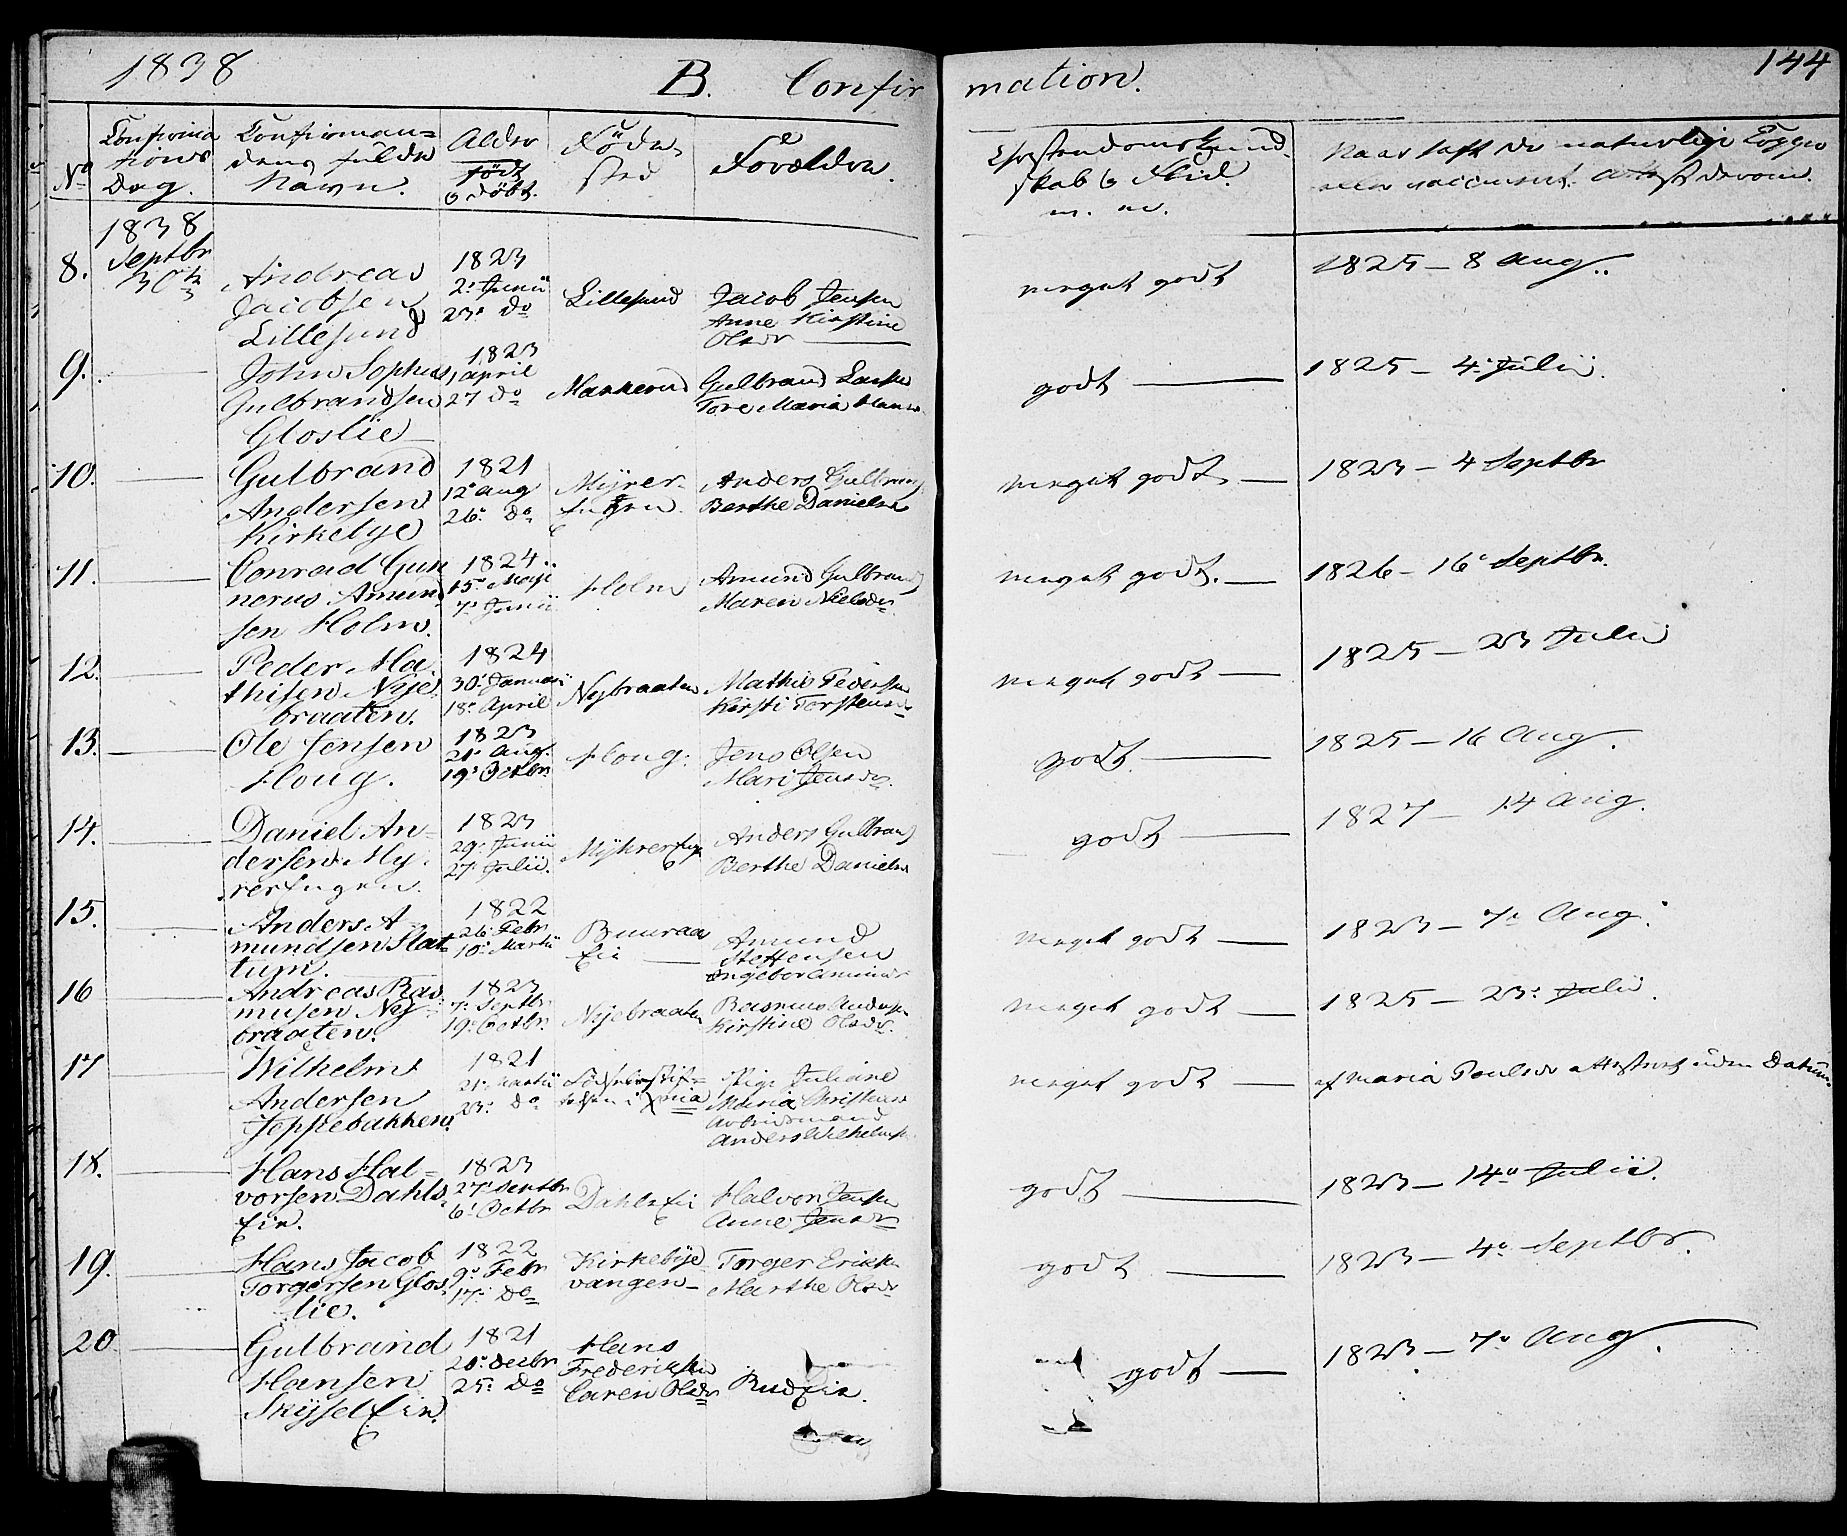 1838 B. Confirmation. 144
No
Confirmations Dag.
Confirmandens fulde Navn.
Alder født & døbt.
Føde sted
Forældre.
Christendoms Kundskab & Flid. m. m.
Naar haft de naturlige Kopper eller vaccineret. Attest derom.
1838 Septbr 30te
8. Andreas Jacobsen Lillesund
1823 2. Junii 23. do
Lillesund
Jacob Jensen Anne Kirstine Olsdr
meget godt
1825 - 8 Aug.
9. John Sophus Gulbrandsen Gloslie
1823 1 April 27 do
Mankerud
Gulbrand Tore Maria
godt
1825 - 4 Julii
10. Gulbrand Andersen Kirkebye
1821 12 Aug 26. do
Myrer Engen
Anders Gulbrands Berthe Danielsdr
meget godt
1823 - 4 Septbr
11. Conrad Gunnerus Amundsen Holm.
1824 15 Maji 7. Junii
Holm
Amund Gulbrands Maren Nielsdr
meget godt.
1826 - 16 Septbr.
12. Peder Mathisen Nyebraaten.
1824 30. Januari 18. April
Nyebraaten
Mathis Pedersen Kirsti Torstensdr
meget godt
1825 - 23 Julii
13. Ole Jensen Houg.
1823 21. Aug. 19. Octbr
Houg.
Jens Olsen Mari Jensdr.
godt.
1825 - 16 Aug.
14. Daniel Andersen Myrerengen.
1823 29. Junii 27. Julii.
Myhrereng
Anders Gulbrands Berthe Danielsdr
godt
1827 - 14 Aug.
15. Anders Amundsen Slattum.
1822 26. Febr 10. Martii
Buuraa Eie
Amund Steffensen Ingebor Amundsdr
meget godt
1823 - 7. Aug.
16 Andreas Rasmusen Nybraaten.
1823 7. Septbr 19. Octbr.
Nyebraaten
Rasmus Andersen Kirstine Olsdr.
meget godt
1825 - 23. Julii.
17 Wilhelm Andersen Toppebakken.
1821 21. Martii 23. do
Fødselsstiftelsen i Xnia
Pige Juliane Maria Christensdr Arbeidsmand Anders Wilhelmsen
meget godt
af Maria Poulsdr attesteret uden Datum
18. Hans Halvorsen Dahls Eie.
1823 27. Septbr 6. Octbr
Dahls Eie
Halvor Jensen Anne Jensdr
godt
1823 - 14. Julii.
19. Hans Jacob Torgersen Gloslie.
1822 9. Febr 17. do
Kirkebye vangen
Torger Eriksen Marthe Olsdr
godt
1823 - 4. Septbr.
20 Gulbrand Hansen Skysseleie.
1821 20. Decbr 25. do
Hans Frederiksen Caren Olsdr
Rud Eie.
godt
1823 - 7. Aug.